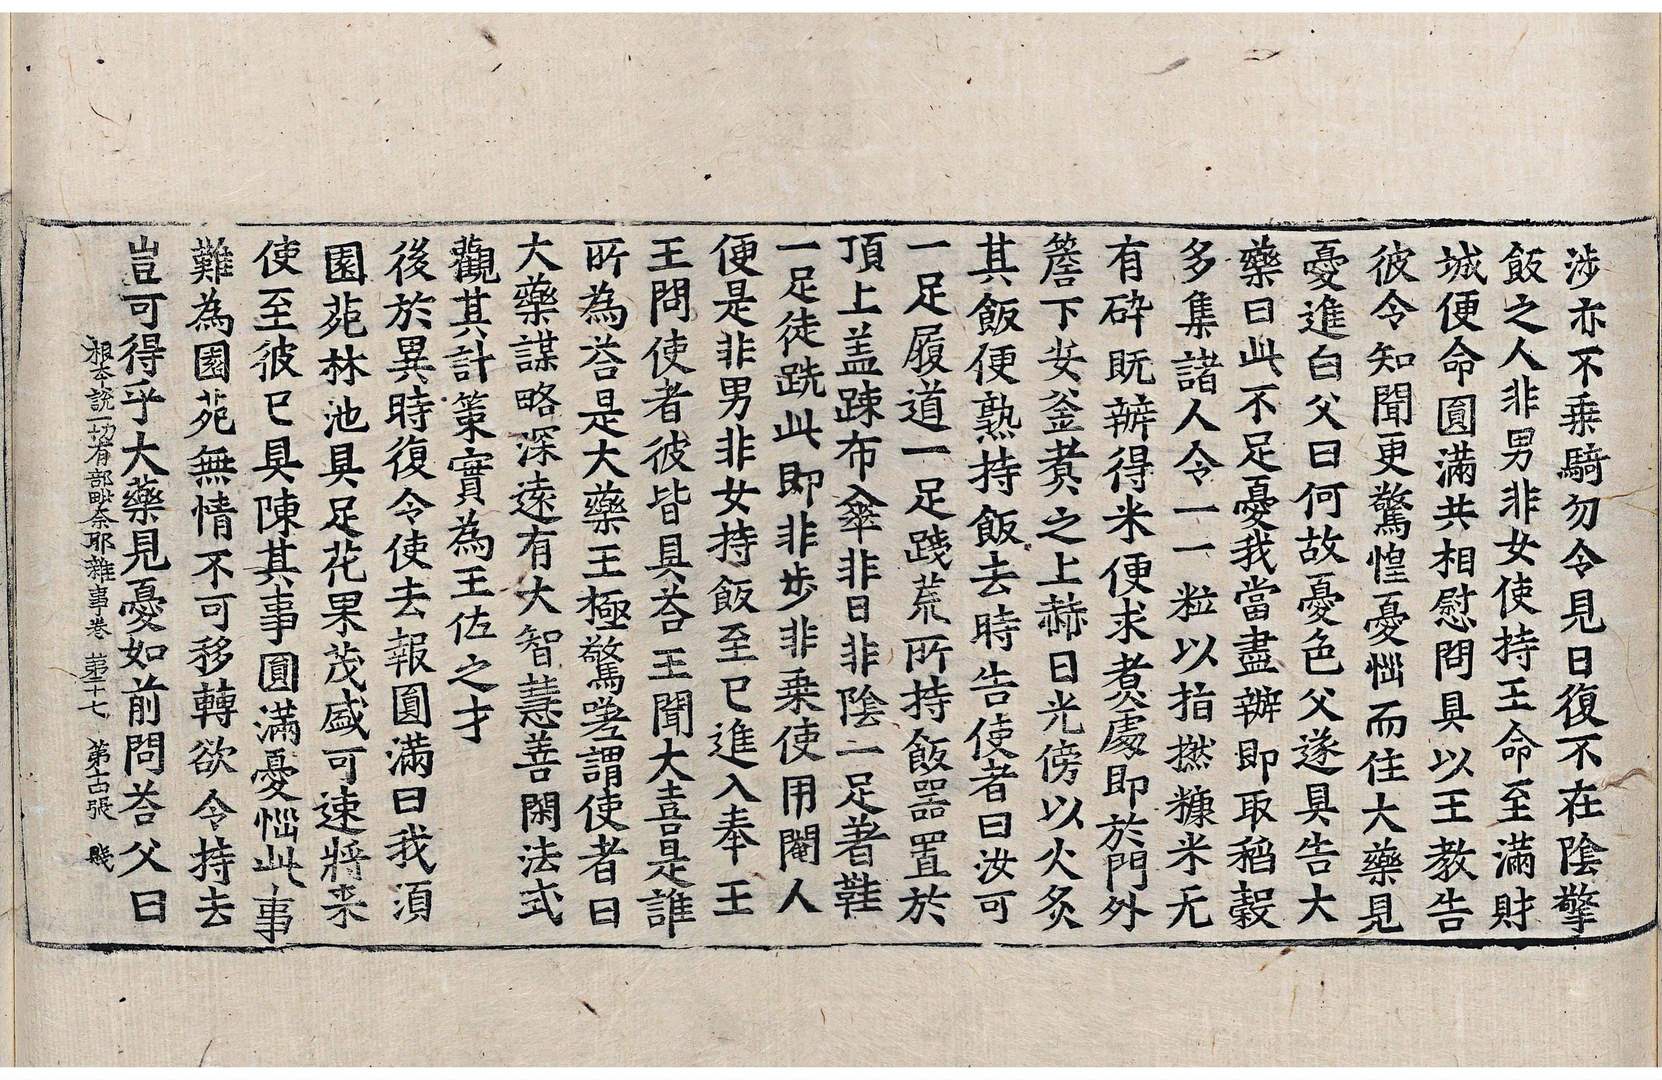 涉亦不乗騎勿令見日復不在陰擎
飯之人非男非女使持王命至滿財
城便命圓滿共相慰問具以王教告
彼令知聞更驚惶憂惱而住大藥見
憂進白父曰何故憂色父遂具告大
藥曰此不足憂我當盡辦即取稻穀
多集諸人令一一粒以指撚糠米无
有碎既辦得米便求煮處即於門外
簷下安釜煑之上赫日光傍以火炙
其飯便熟持飯去時告使者曰汝可
一足履道一足踐荒所持飯器置於
頂上盖踈布傘非日非陰二足著鞋
一足徒跣此即非步非乗使用閹人
便是非男非女持飯至已進入奉王
王問使者彼皆具荅王聞大喜是誰
所為荅是大藥王極驚嗟謂使者曰
大藥謀略深遠有大智慧善閑法式
觀其計策實為王佐之才
後於異時復令使去報圓滿曰我須
園苑林池具足花果茂盛可速將来
使至彼已具陳其事圓滿憂惱此事
難為園苑無情不可移轉欲令持去
豈可得乎大藥見憂如前問荅父曰
根本說一切有部毗奈耶雜事卷 第十七 第古張